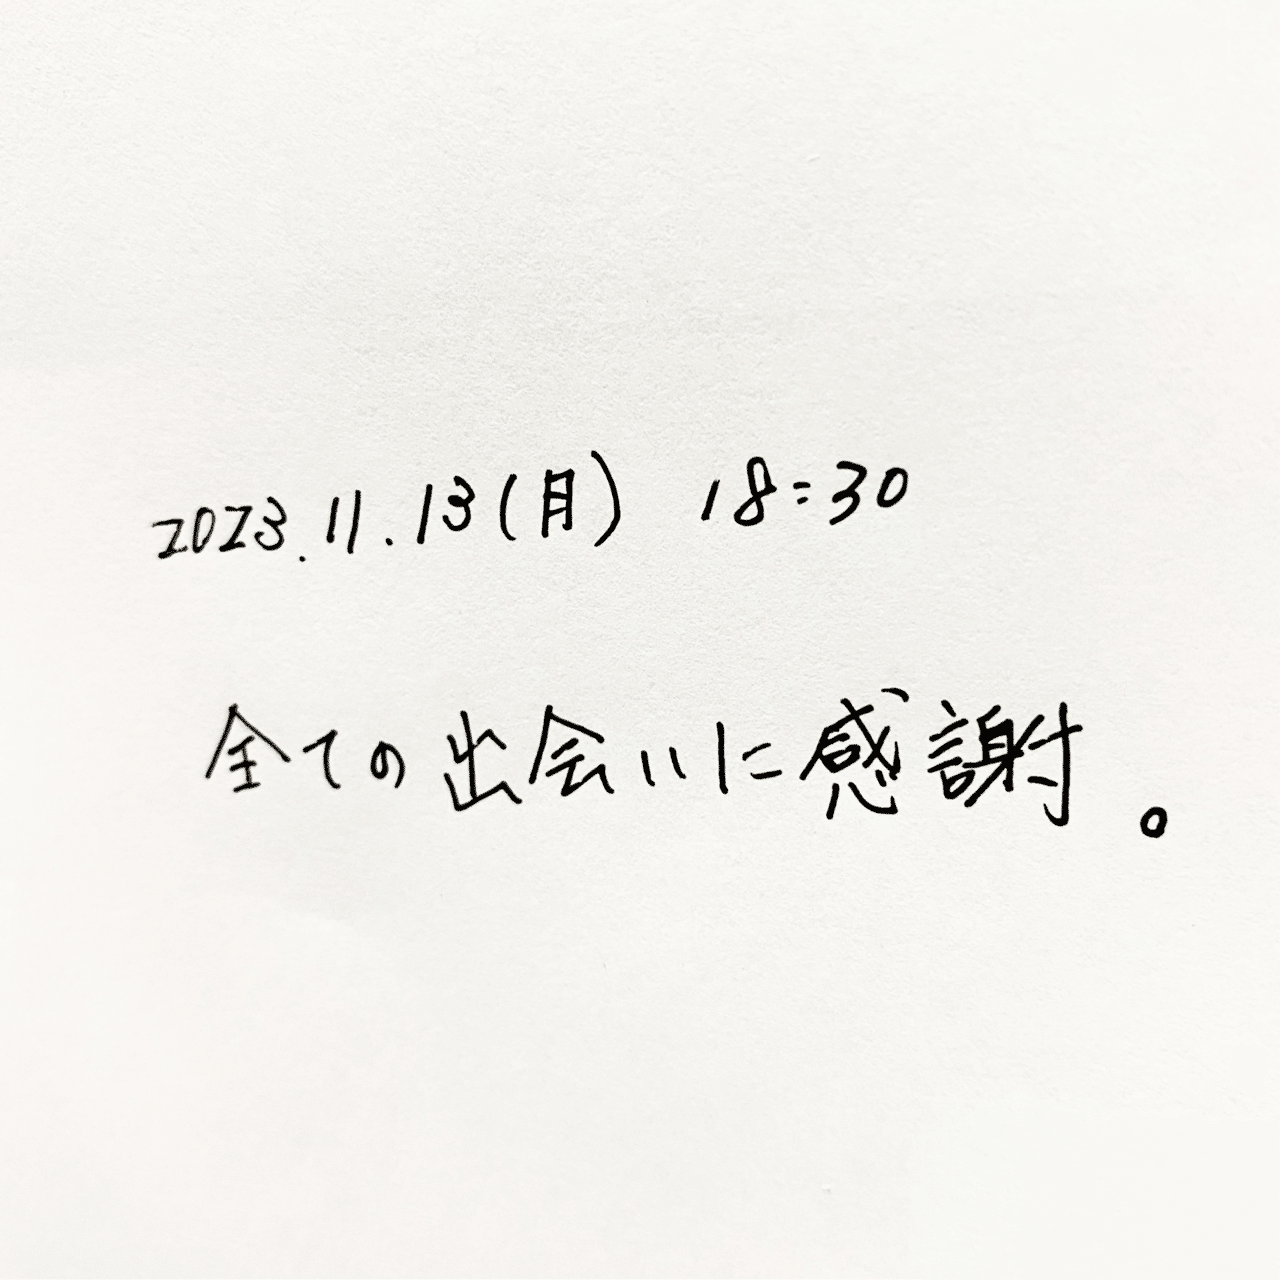 2023.11.13(月) 18:30
全ての出会いに感謝。